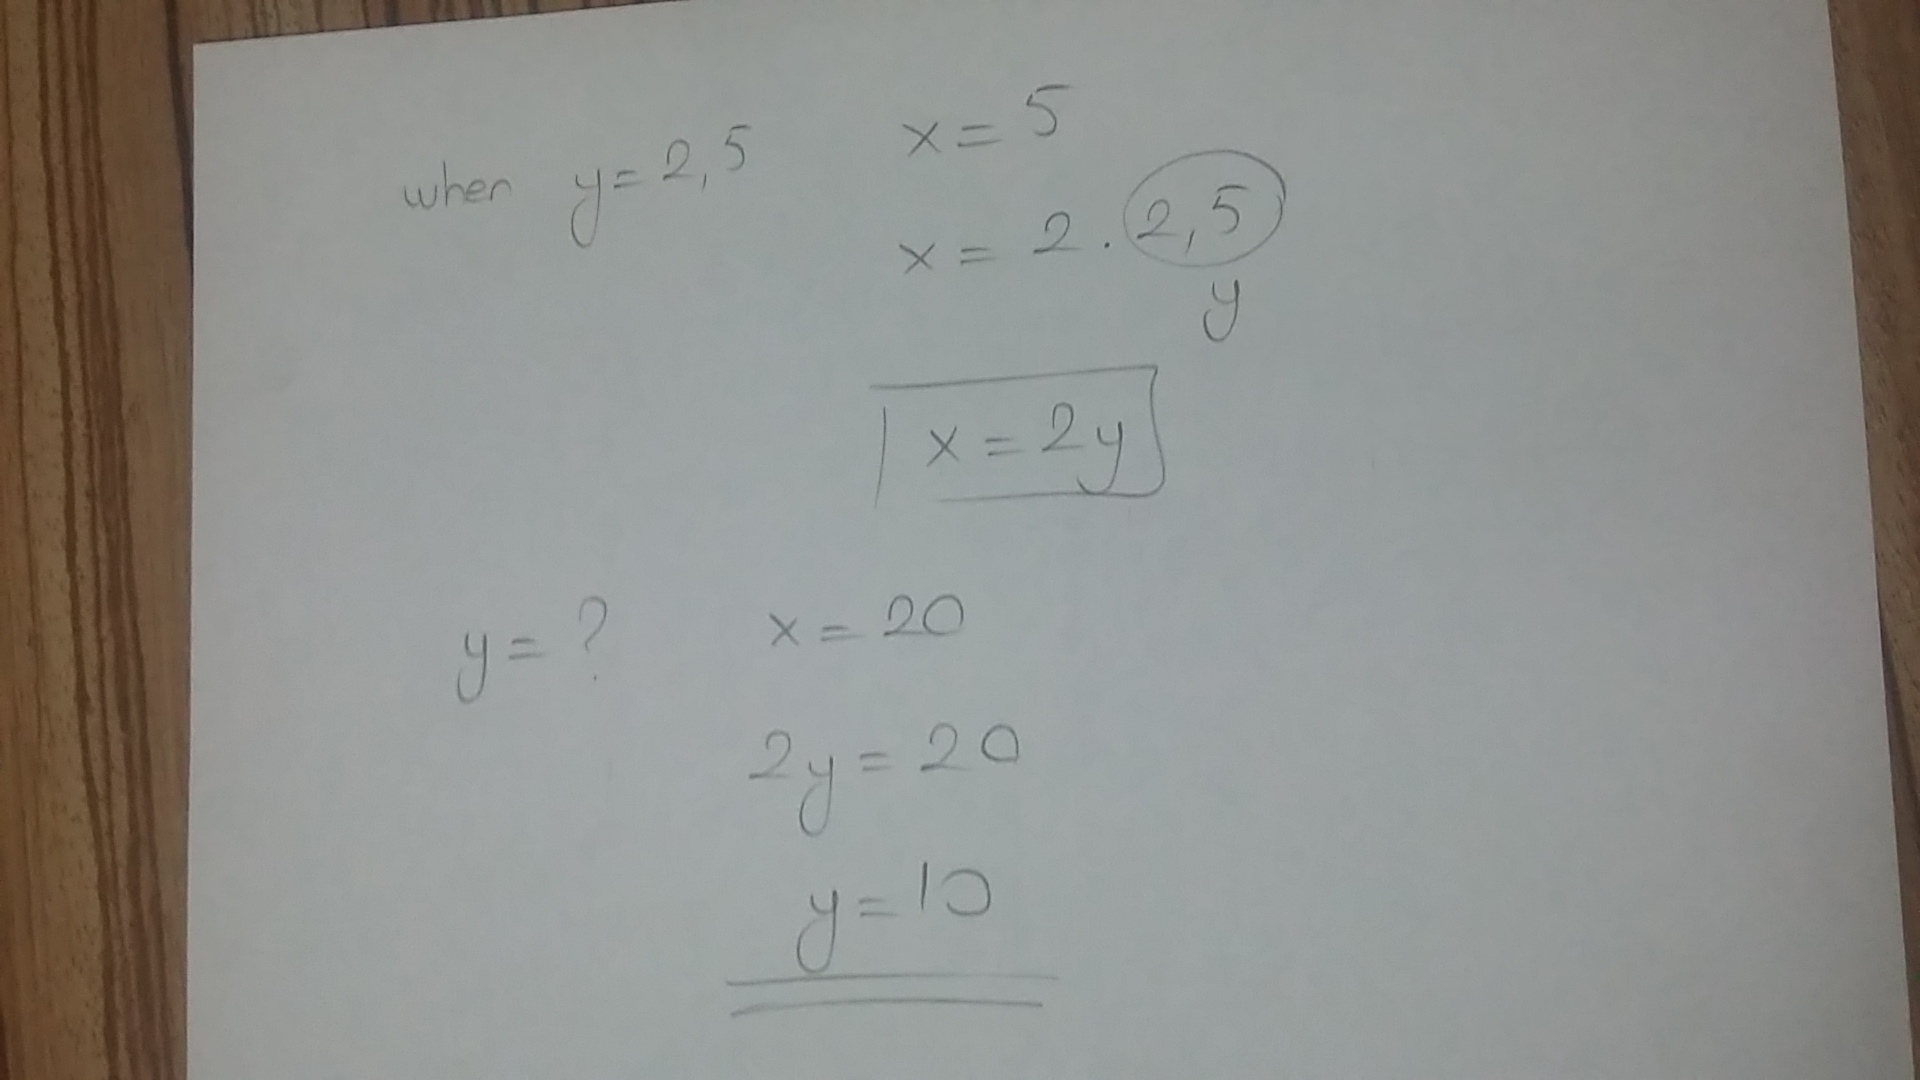 when y = 2,5 x = 5
x = 2 . 2,5
y
x = 2y
y = ? x = 20
2y = 20
y = 10